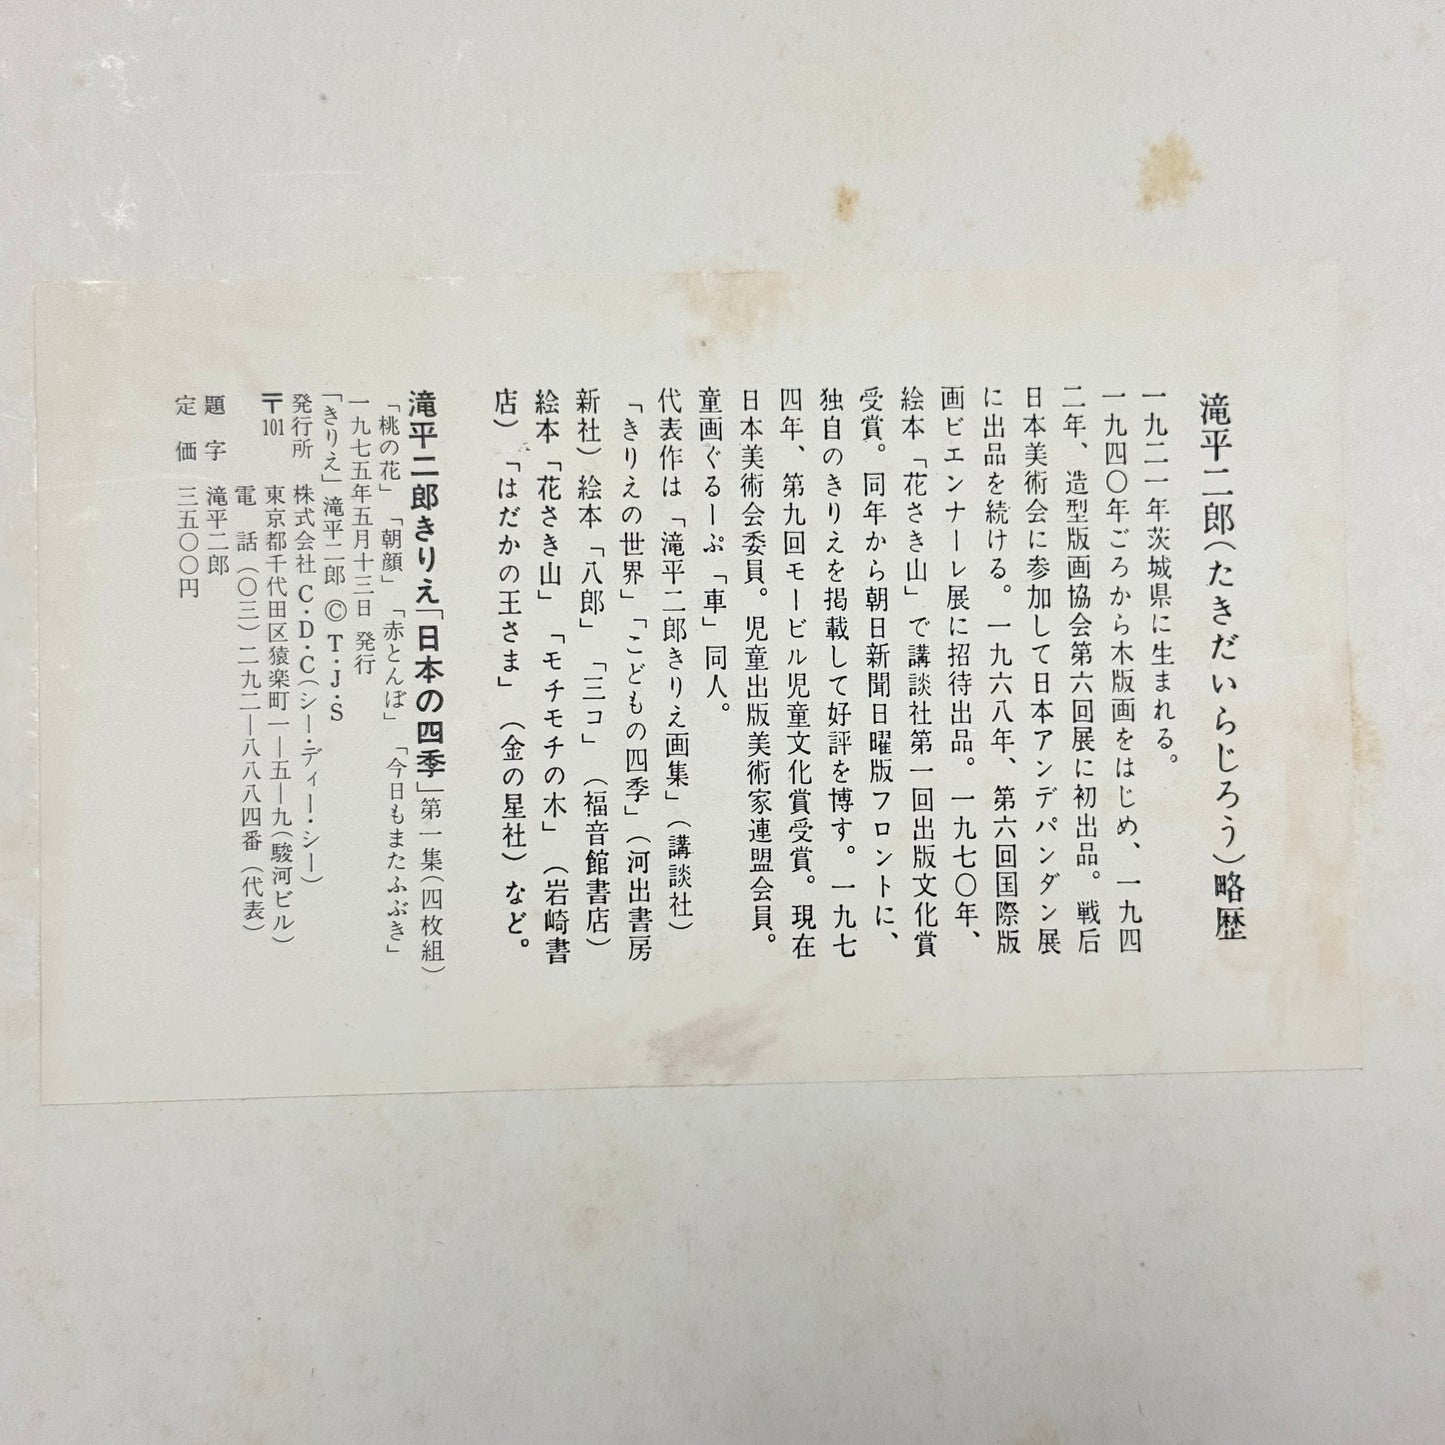 滝平二郎（たきだいらじろう）略歴
一九二一年茨城県に生まれる。
一九四〇年ごろから木版画をはじめ、一九四
二年、造型版画協会第六回展に初出品。戦后
日本美術会に参加して日本アンデパンダン展
に出品を続ける。一九六八年、第六回国際版
画ビエンナーレ展に招待出品。一九七〇年、
絵本「花さき山」で講談社第一回出版文化賞
受賞。同年から朝日新聞日曜版フロントに、
独自のきりえを掲載して好評を博す。一九七
四年、第九回モービル児童文化賞受賞。現在
日本美術会委員。児童出版美術家連盟会員。
童画ぐるーぷ「車」同人。
代表作は「滝平二郎きりえ画集」（講談社）
「きりえの世界」「こどもの四季」（河出書房
新社）絵本「八郎」「三コ」（福音館書店）
絵本「花さき山」「モチモチの木」（岩崎書
店）「はだかの王さま」（金の星社）など。
滝平二郎きりえ「日本の四季」第一集（四枚組）
「桃の花」「朝顔」「赤とんぼ」「今日もまたふぶき」
一九七五年五月十三日 発行
「きりえ」滝平二郎 © T・J・S
発行所 株式会社 C・D・C（シー・ディー・シー）
〒101 東京都千代田区猿楽町一―五―九（駿河ビル）
電 話（〇三）二九二―八八八四番（代表）
題 字 滝平二郎
定 価 三五〇〇円